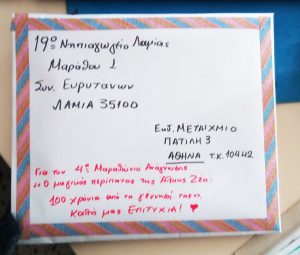 19ο Νηπιαγωγείο Λαμίας
Μαράθου 1
Συν. Ευρυτάνων
ΛΑΜΙΑ 35100
Εκδ. ΜΕΤΑΙΧΜΙΟ
ΠΑΤΙΛΗ 3
ΑΘΗΝΑ Τ.Κ. 10442
Για τον 4ο Μαραθώνιο Ανάγνωσης
"Ο μαγικός περίπατος της Άλκης Ζέη:
100 χρόνια από τη γέννησή της".
Καλή μας ΕΠΙΤΥΧΙΑ!